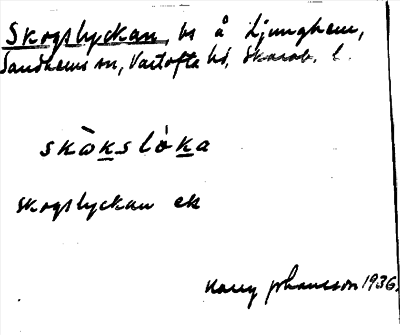 Skogslyckan, bs å Ljunghem,
Sandhems sn, Vartofta hd, Skarab. l.
skὼkslὸka
skogslyckan ek
Harry Johansson 1936.